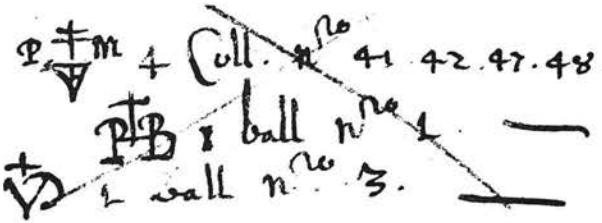 P M 4 Coll. nro 41 42.47.48
P B 1 ball nro 1
1 ball nro 3.